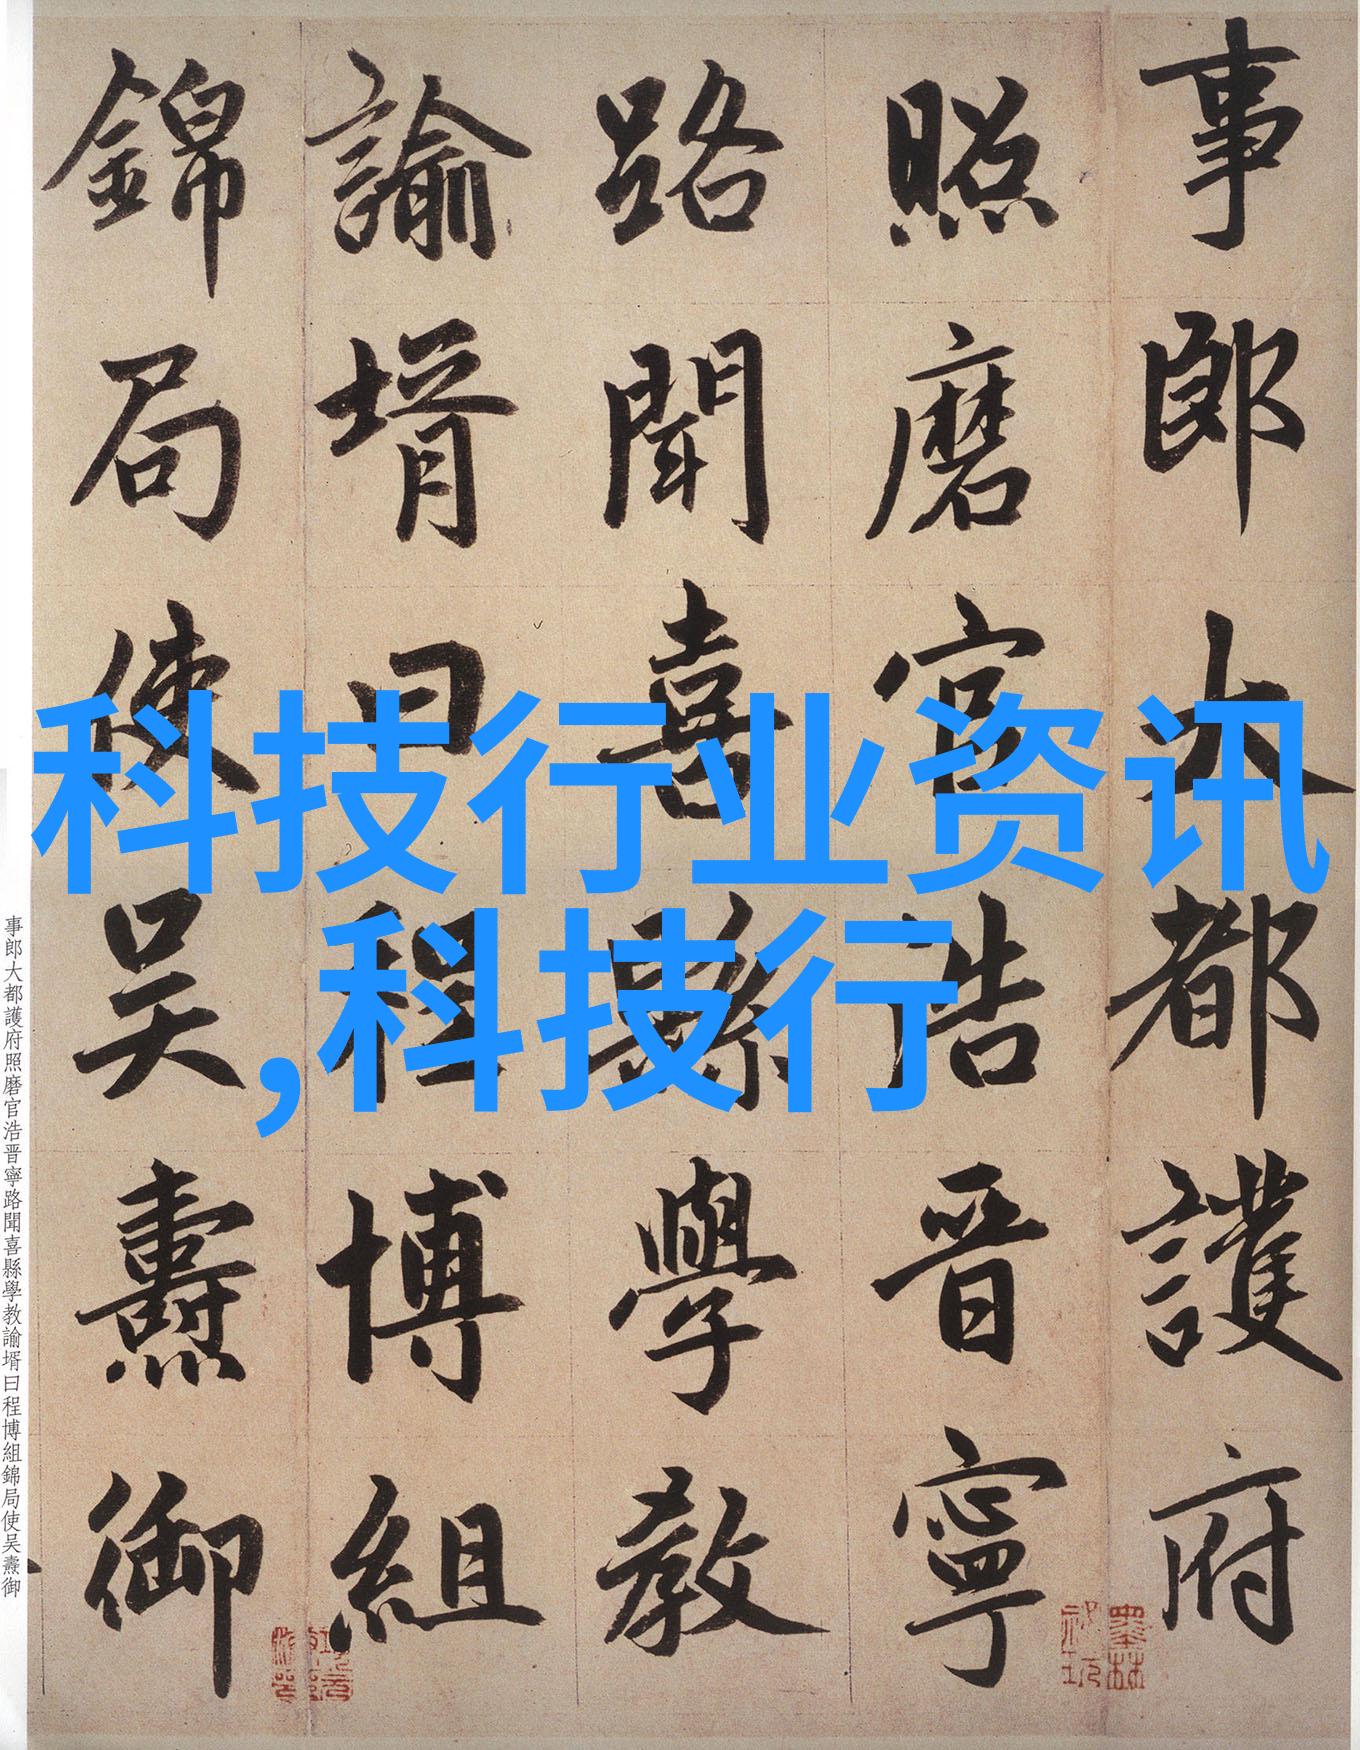 事郎大都護府
照磨官浩晋寧
路聞喜縣學教
諭壻曰程博組
錦局使吴燾御
科技行业资讯
,科技行
事郎大都護府照磨官浩晋寧路聞喜縣學教諭壻曰程博組錦局使吴燾御